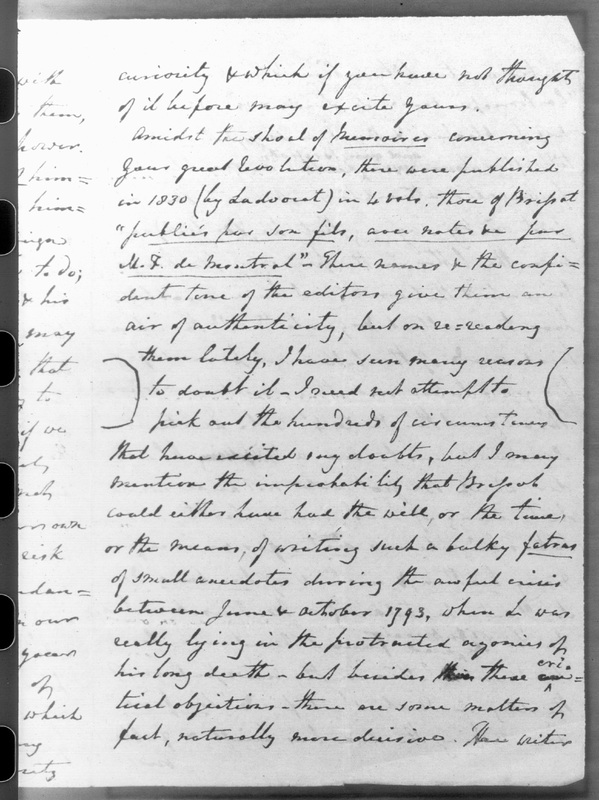 curiosity & which if you have not thought
of it before may excite yours.
Amidst the shoal of Memoires concerning
your great Revolution, there were published
in 1830 (by Ladvocat) in 4 vols. those of Brissot
"publiés par son fils, avec notes &c par
M. F. de Montrol" - These names & the confi=
dent tone of the editors give them an
air of authenticity, but on re=reading
them lately, I have seen many reasons
to doubt it - I need not attempt to
pick out the hundreds of circumstances
that have excited my doubts, but I may
mention the improbability that Brissot
could either have had the will, or the time,
or the means, of writing such a bulky fatras
of small anecdotes during the awful crisis
between June & October 1793, when he was
really lying in the protracted agonies of
his long death - but besides these cri=
tical objections - there are some matters of
fact, naturally more decisive. The writer
with
them,
however.
him=
him=
to do;
& his
may
that
to
if we
own
risk
our
years
of
which